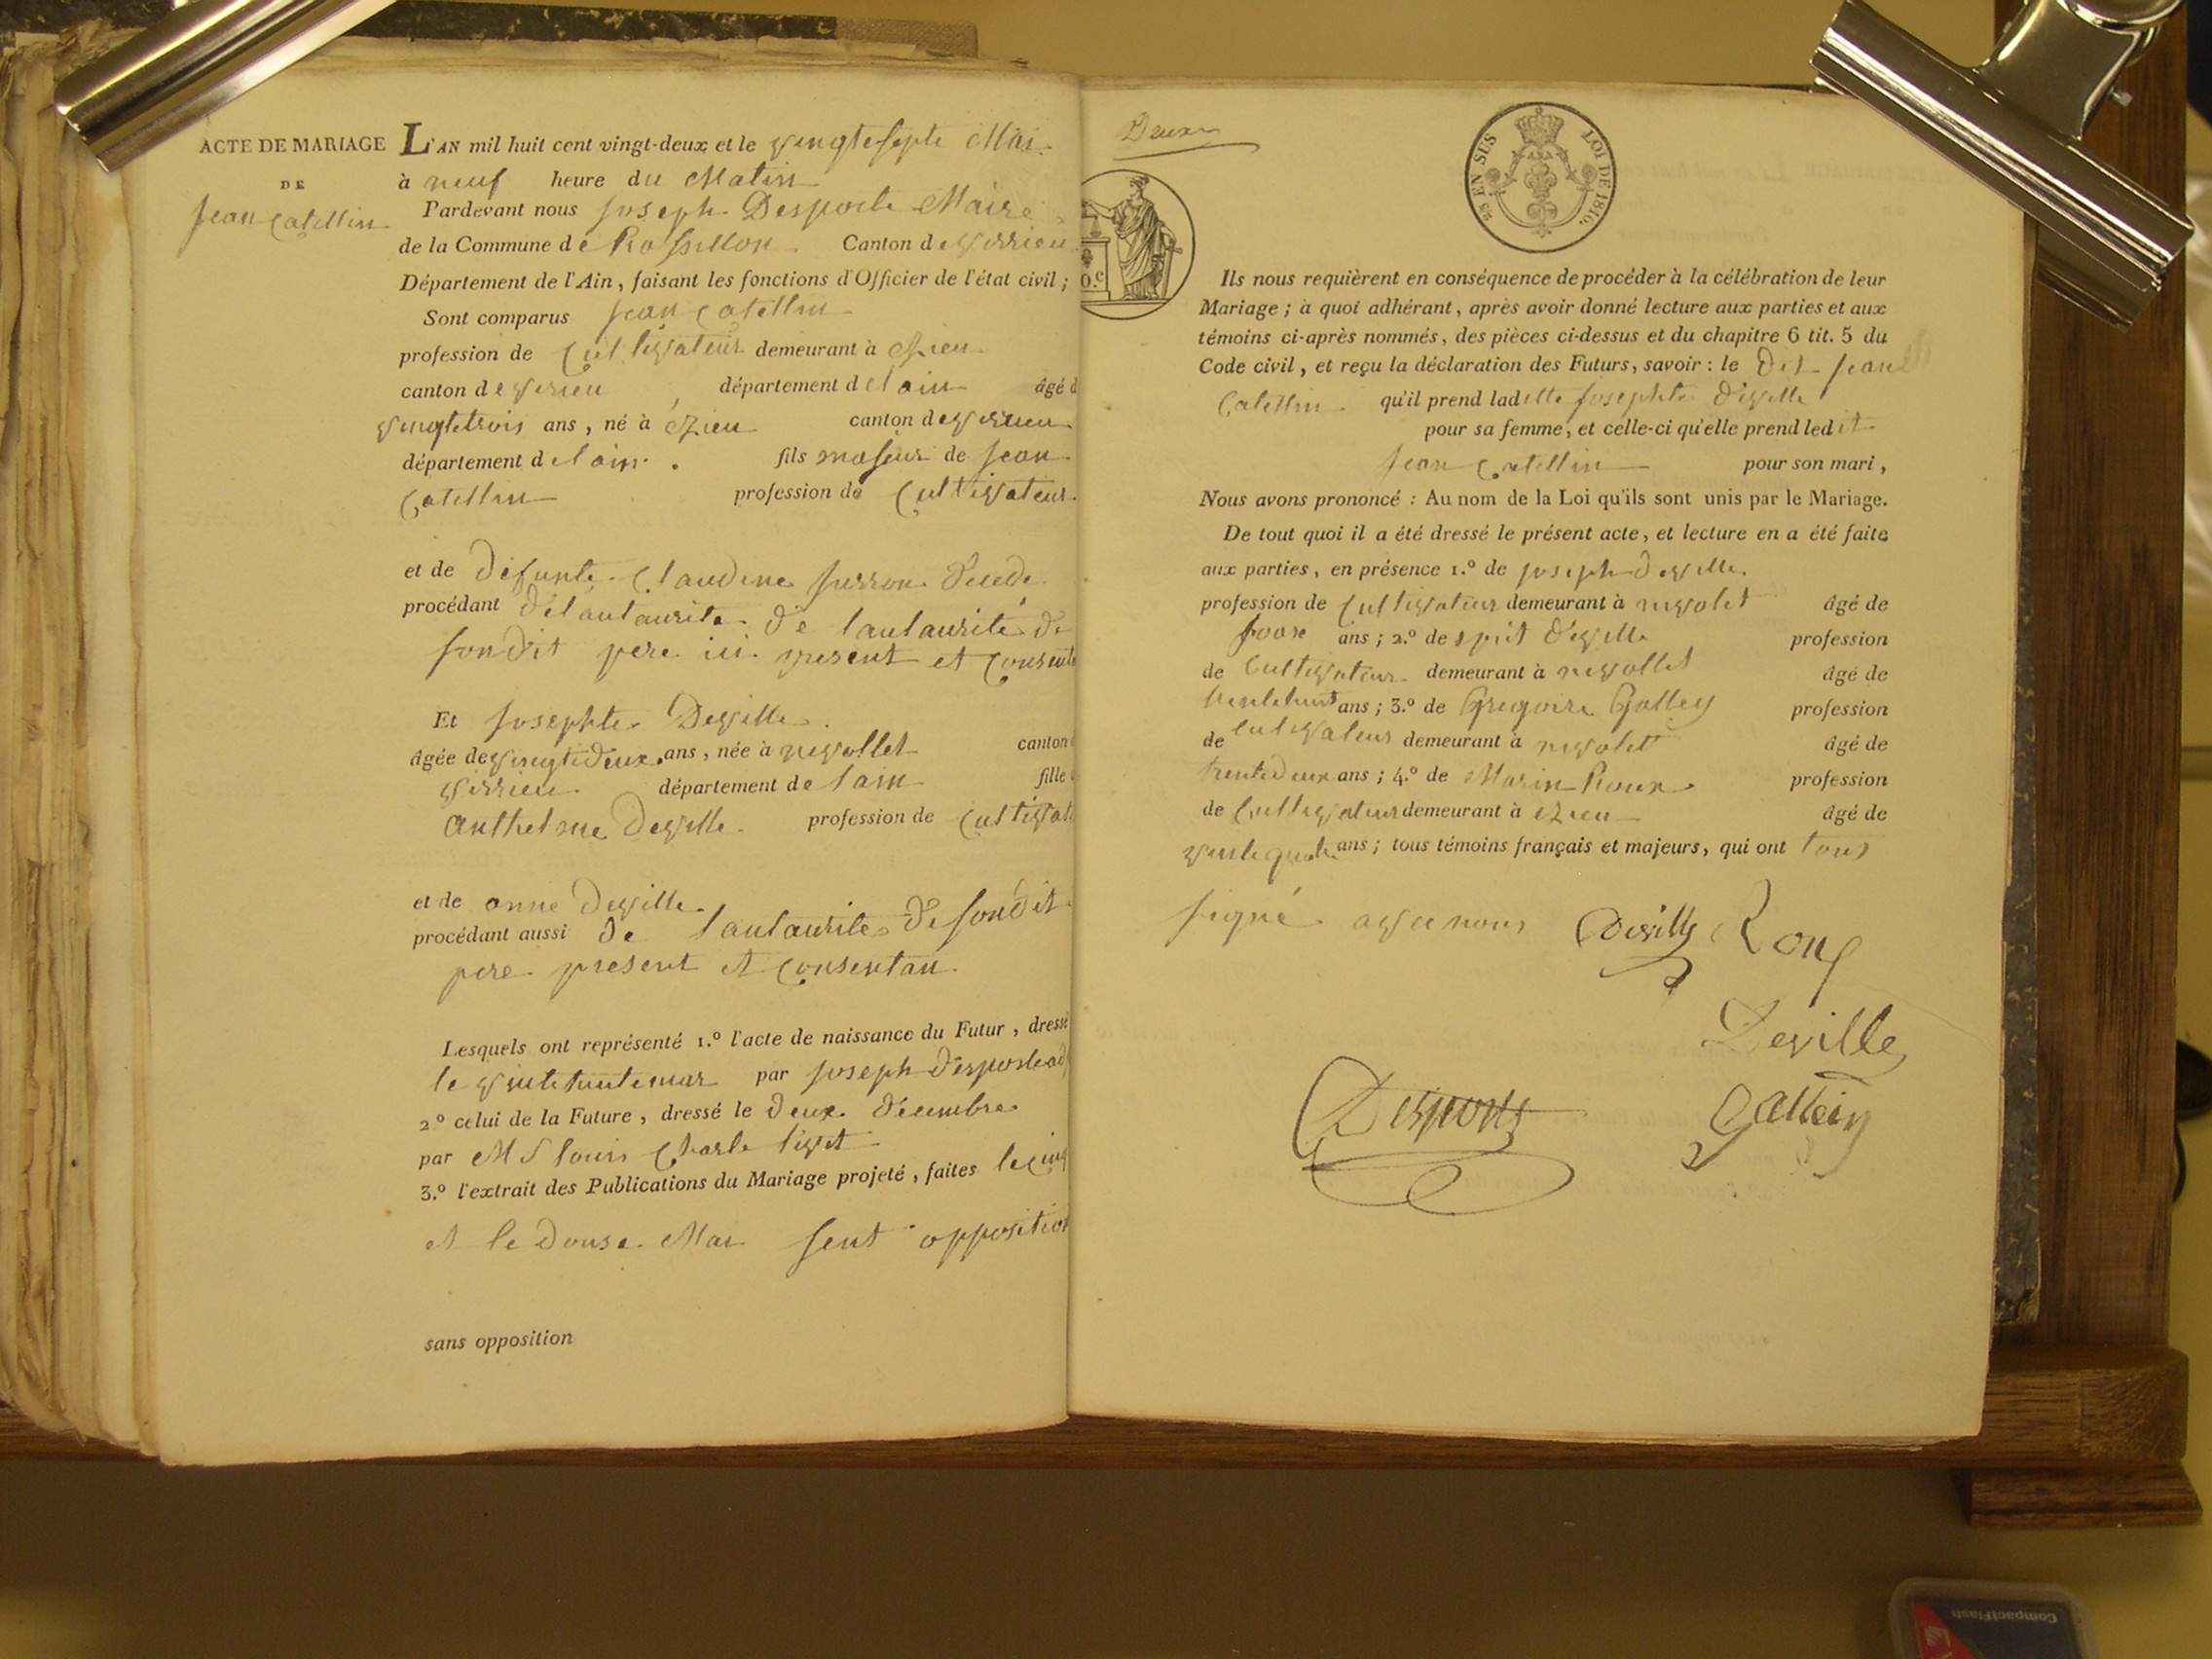 ACTE DE MARIAGE
DE
Jean Catellin
L'AN mil huit cent vingt-deux et le vingtesepte Mai
à neuf heure du Matin
Pardevant nous joseph Desporte Maire
de la Commune de Rossillon Canton de virrieu
Département de l'Ain, faisant les fonctions d'Officier de l'état civil ;
Sont comparus jean Catellin
profession de Cultivateur demeurant à
canton de virieu département de l ain âgé d
vingtetrois ans, né à ézieu canton de virieu
département de l ain . fils majeur de jean
Catellin profession de Cultivateur
et de défunte Claudine
procédant de lautaurité de
sondit pere ici present et Consent
Et josephte Deville
âgée de vingtedeux ans, née à nivollet canton
virrieu département de lain fille
anthelme Deville profession de Cultivat
et de anne Deville
procédant aussi de lautaurite de sondit
pere present et Consentan
Lesquels ont représenté 1.º l'acte de naissance du Futur, dressé
le par joseph desporte
2.º celui de la Future, dressé le deux décembre
par louis Charle
3.º l'extrait des Publications du Mariage projeté, faites le cinq
et le douse Mai sent opposition
sans opposition
Deux
25 EN SUS LOI DE 1816.
0.c
Ils nous requièrent en conséquence de procéder à la célébration de leur
Mariage ; à quoi adhérant, après avoir donné lecture aux parties et aux
témoins ci-après nommés, des pièces ci-dessus et du chapitre 6 tit. 5 du
Code civil, et reçu la déclaration des Futurs, savoir : le dit jean
Catellin qu'il prend ladette josephte déville
pour sa femme, et celle-ci qu'elle prend ledit
jean Catellin pour son mari,
Nous avons prononcé : Au nom de la Loi qu'ils sont unis par le Mariage.
De tout quoi il a été dressé le présent acte, et lecture en a été faite
aux parties, en présence 1.º de joseph deville
profession de Cultivateur demeurant à nivolet âgé de
ans ; 2.º de sprit déville profession
de Cultivateur demeurant à nivollet âgé de
ans ; 3.º de Gregoire Galley profession
de Cultivateur demeurant à nivolet âgé de
trentedeux ans ; 4.º de Marin Roux profession
de Cultivateur demeurant à ezieu âgé de
ans ; tous témoins français et majeurs, qui ont tous
signé avec nous Deville Roux
Deville
Desporte Gallein